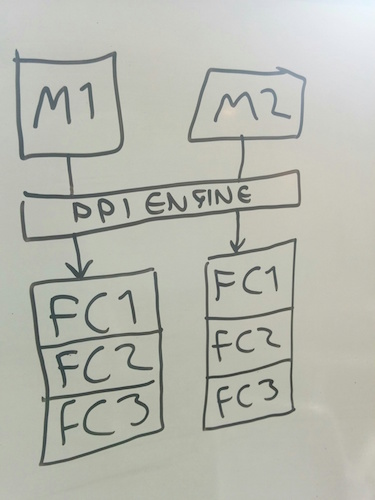 M1
M2
PPI ENGINE
FC1
FC2
FC3
FC1
FC2
FC3